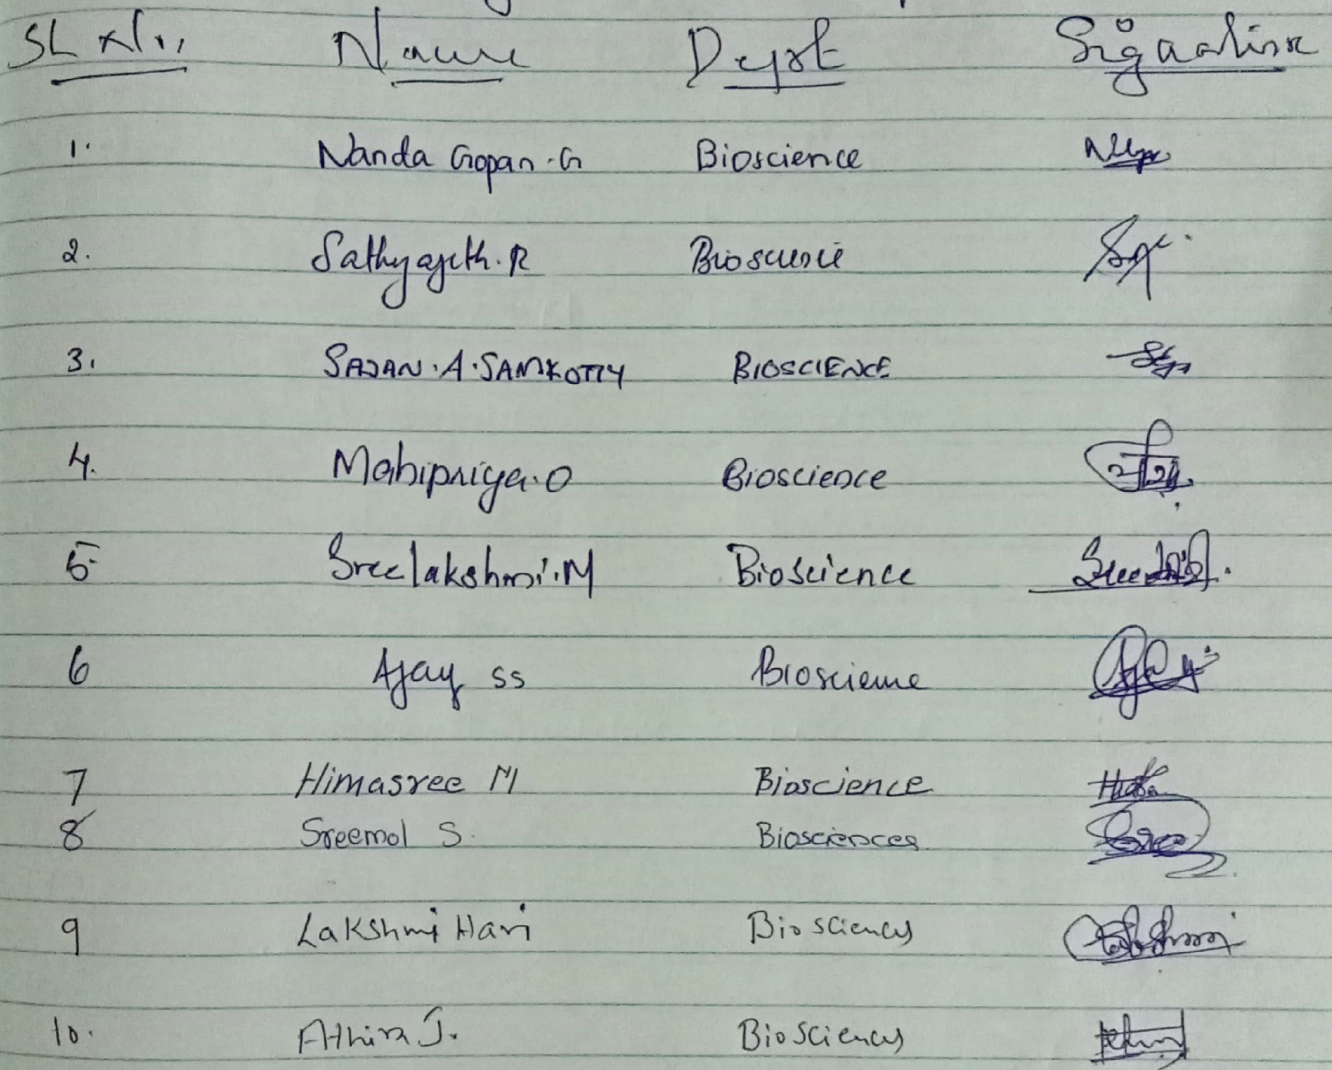 SL No. Name Dept Signature
1. Nanda Gopan . G Bioscience
2. Sathyajith . R Bioscience
3. SAJAN . A . SAMKOTTY BIOSCIENCE
4. Mahipriya . O Bioscience
5 Sreelakshmi . M Bioscience
6 Ajay SS Bioscience
7 Himasree M Bioscience
8 Sreemol S. Biosciences
9 Lakshmi Hari Biosciences
10. Athira J. Biosciences